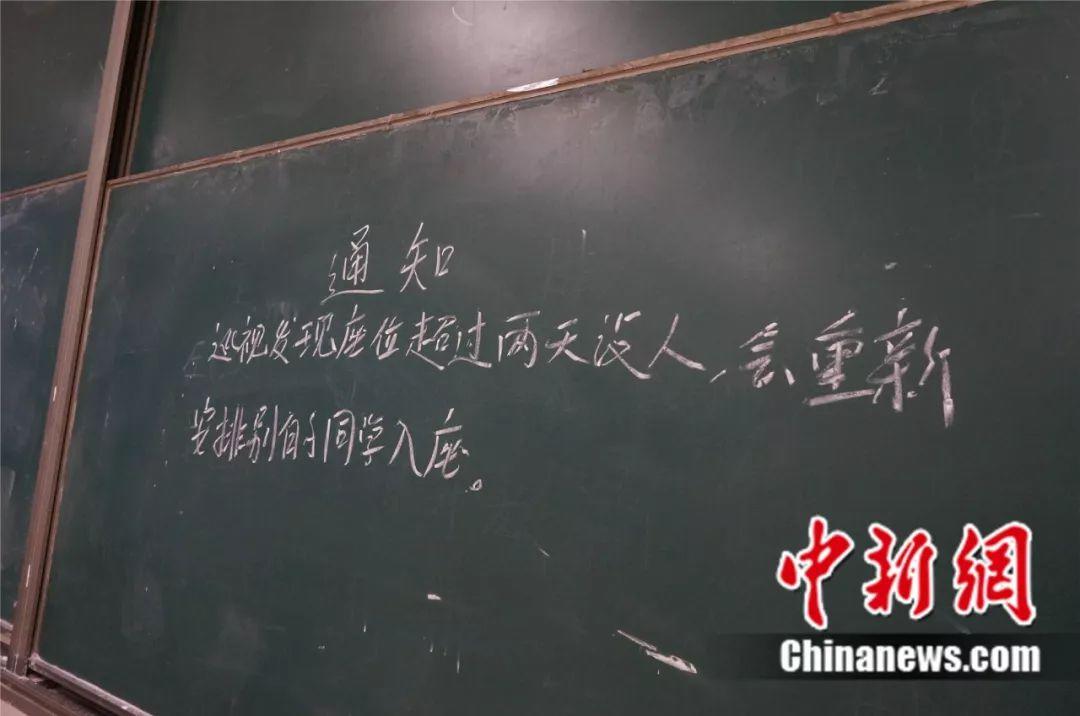 通知
巡视发现座位超过两天没人,会重新
安排别的同学入座。
中新網
Chinanews.com